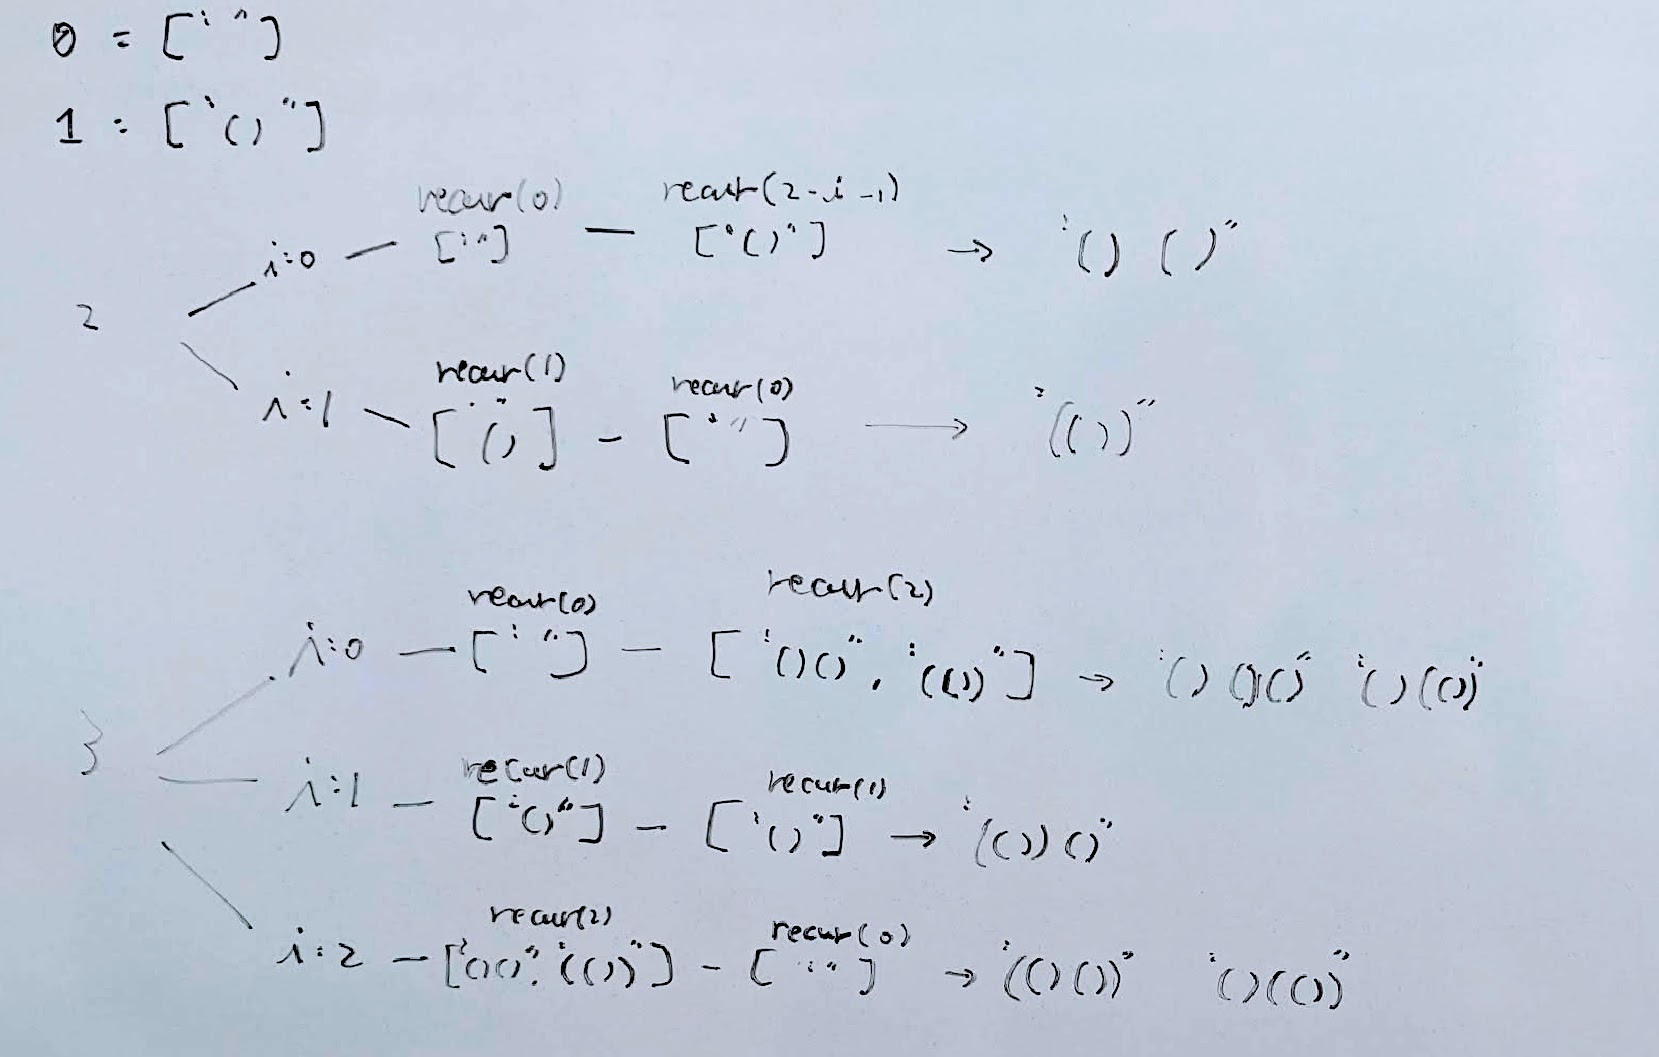 0 = [" "]
1 : ["()"]
recur(0) recur(2-i-1)
i:0 — [" "] — ["()"] → "() ()"
2
recur(1) recur(0)
i:1 — ["()"] - [" "] → "(())"
recur(0) recur(2)
i:0 — [" "] — ["()()", "(())"] → "()()()" "()(())"
3
recur(1) recur(1)
i:1 — ["()"] — ["()"] → "(())()"
recur(2) recur(0)
i:2 — ["()()", "(())"] - [" "] → "(()())" "()(())"